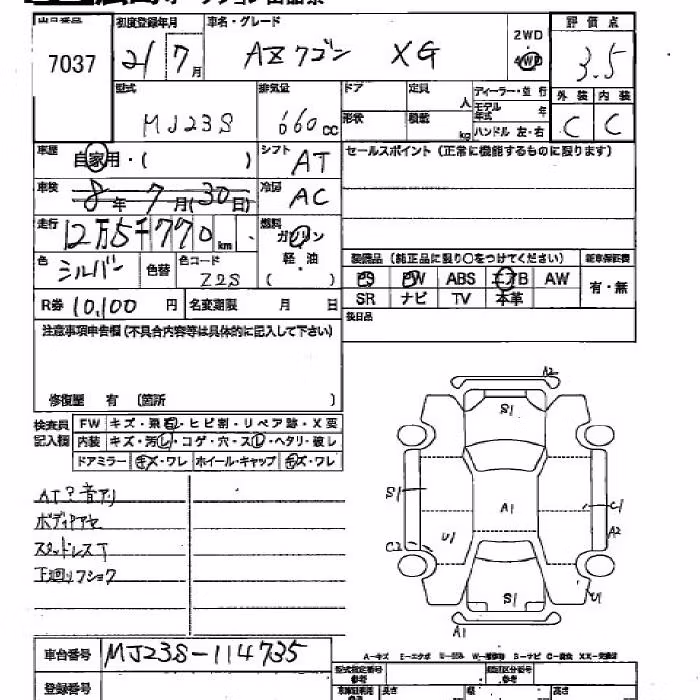 出品番号 初度登録年月 車名・グレード 2WD 4WD 評価点
7037 21 7月 AZワゴン XG 3.5
型式 排気量 ドア 定員 人 ディーラー・並行 外装 内装
MJ23S 660cc 形状 積載 kg モデル年式 年 C C
ハンドル 左・右
車歴 自家用・( ) シフト AT セールスポイント (正常に機能するものに限ります)
車検 8年 7月(30日) 冷房 AC
走行 12万5千770km 燃料 ガソリン
色 シルバー 色替 色コード Z2S 軽・油 ( )
装備品 (純正品に限り○をつけてください) 新車保証書
PS PW ABS エアB AW 有・無
SR ナビ TV 本革
R券 10,100円 名変期限 月 日
後日品
注意事項申告欄(不具合内容等は具体的に記入して下さい)
修復歴 有 (箇所 )
検査員記入欄 FW キズ・飛石・ヒビ割・リペア跡・X要
内装 キズ・汚レ・コゲ・穴・スレ・ヘタリ・破レ
ドアミラー キズ・ワレ ホイール・キャップ キズ・ワレ
A2
S1
S1 A1 C1
A2
U1
C2
S1 U1
A1
AT?音アリ
ボディアセ
スタッドレスT
下廻リフショク
車台番号 MJ23S-114735
A-キズ E-エクボ
登録番号
型式指定番号 参考 類別区分番号 参考
長さ 幅 高さ